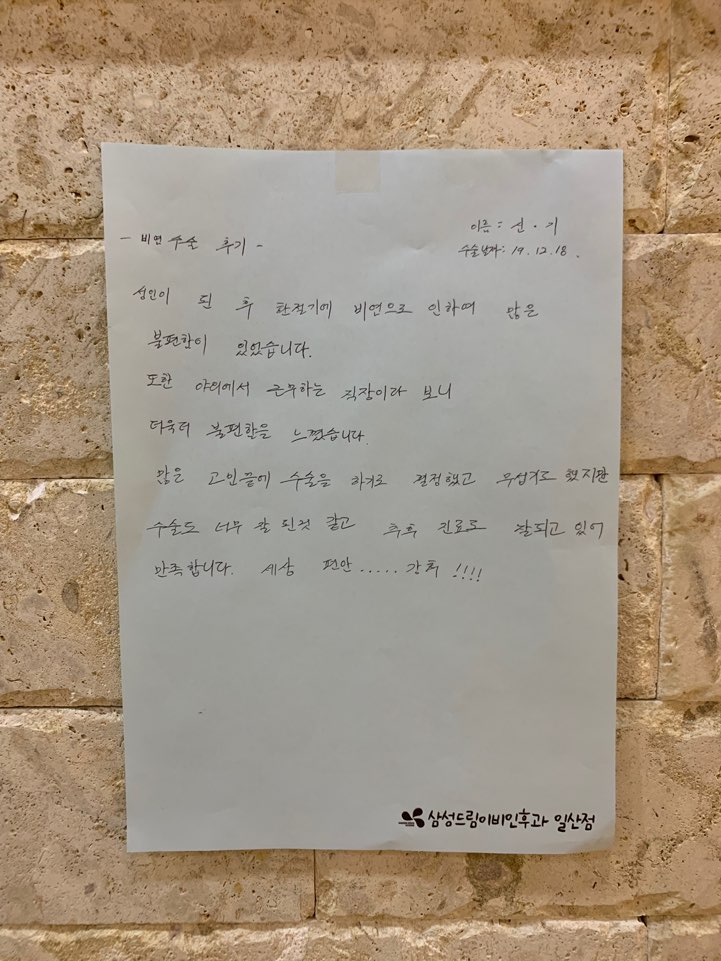 - 비염 수술 후기 -
이름 : 신 · 기
수술날짜 : 19. 12. 18.
성인이 된 후 환절기에 비염으로 인하여 많은
불편함이 있었습니다.
또한 야외에서 근무하는 직장이라 보니
더욱더 불편함을 느꼈습니다.
많은 고민끝에 수술을 하기로 결정했고 무섭기도 했지만
수술도 너무 잘 된것 같고 추후 진료도 잘되고 있어
만족합니다. 세상 편안 ..... 강추 !!!!
삼성드림이비인후과 일산점